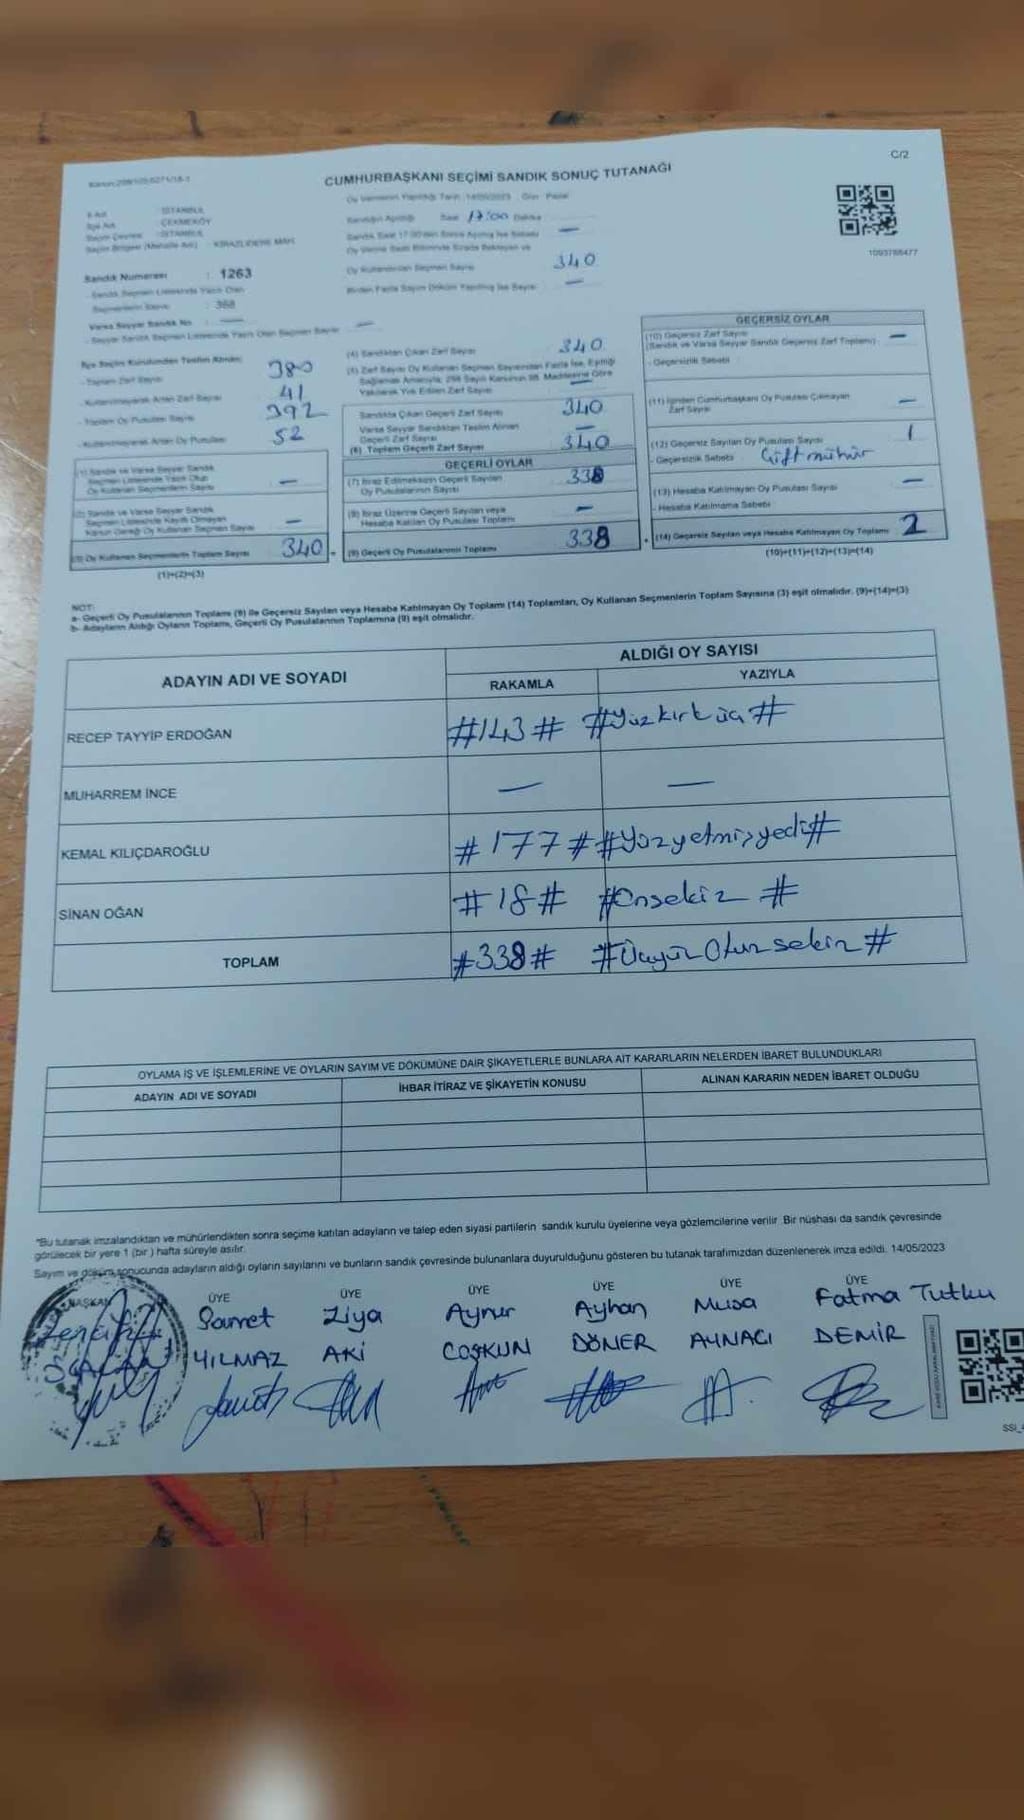 C/2
CUMHURBAŞKANI SEÇİMİ SANDIK SONUÇ TUTANAĞI
Oy Vermenin Yapıldığı Tarih : 14/05/2023 Gün : Pazar
İl Adı : İSTANBUL
İlçe Adı : ÇEKMEKÖY
Seçim Çevresi : İSTANBUL
Seçim Bölgesi (Mahalle Adı) : KİRAZLIDERE MAH.
Sandığın Açıldığı Saat 17:00 Dakika
Sandık Saat 17:00'den Sonra Açılmış İse Sebebi —
Oy Verme Saati Bitiminde Sırada Bekleyen ve
Oy Kullandırılan Seçmen Sayısı 340
Birden Fazla Sayım Döküm Yapılmış İse Sayısı —
1093788477
Sandık Numarası : 1263
- Sandık Seçmen Listesinde Yazılı Olan
Seçmenlerin Sayısı : 368
Varsa Seyyar Sandık No : —
- Seyyar Sandık Seçmen Listesinde Yazılı Olan Seçmen Sayısı —
İlçe Seçim Kurulundan Teslim Alınan;
- Toplam Zarf Sayısı 380
- Kullanılmayarak Artan Zarf Sayısı 41
- Toplam Oy Pusulası Sayısı 392
- Kullanılmayarak Artan Oy Pusulası 52
(1) Sandık ve Varsa Seyyar Sandık
Seçmen Listesinde Yazılı Olup
Oy Kullanan Seçmenlerin Sayısı —
(2) Sandık ve Varsa Seyyar Sandık
Seçmen Listesinde Kayıtlı Olmayan
Kanun Gereği Oy Kullanan Seçmen Sayısı —
(3) Oy Kullanan Seçmenlerin Toplam Sayısı 340
(1)+(2)=(3)
(4) Sandıktan Çıkan Zarf Sayısı 340
(5) Zarf Sayısı Oy Kullanan Seçmen Sayısından Fazla İse, Eşitliği
Sağlamak Amacıyla, 298 Sayılı Kanunun 98. Maddesine Göre
Yakılarak Yok Edilen Zarf Sayısı —
Sandıkta Çıkan Geçerli Zarf Sayısı 340
Varsa Seyyar Sandıktan Teslim Alınan
Geçerli Zarf Sayısı —
(6) Toplam Geçerli Zarf Sayısı 340
GEÇERLİ OYLAR
(7) İtiraz Edilmeksizin Geçerli Sayılan
Oy Pusulalarının Sayısı 338
(8) İtiraz Üzerine Geçerli Sayılan veya
Hesaba Katılan Oy Pusulası Toplamı —
(9) Geçerli Oy Pusulalarının Toplamı 338
GEÇERSİZ OYLAR
(10) Geçersiz Zarf Sayısı
(Sandık ve Varsa Seyyar Sandık Geçersiz Zarf Toplamı) —
- Geçersizlik Sebebi
(11) İçinden Cumhurbaşkanı Oy Pusulası Çıkmayan
Zarf Sayısı —
(12) Geçersiz Sayılan Oy Pusulası Sayısı 1
- Geçersizlik Sebebi Çift mühür
(13) Hesaba Katılmayan Oy Pusulası Sayısı —
- Hesaba Katılmama Sebebi
(14) Geçersiz Sayılan veya Hesaba Katılmayan Oy Toplamı 2
(10)+(11)+(12)+(13)=(14)
NOT:
a- Geçerli Oy Pusulalarının Toplamı (9) ile Geçersiz Sayılan veya Hesaba Katılmayan Oy Toplamı (14) Toplamları, Oy Kullanan Seçmenlerin Toplam Sayısına (3) eşit olmalıdır. (9)+(14)=(3)
b- Adayların Aldığı Oyların Toplamı, Geçerli Oy Pusulalarının Toplamına (9) eşit olmalıdır.
ADAYIN ADI VE SOYADI
ALDIĞI OY SAYISI
RAKAMLA YAZIYLA
RECEP TAYYİP ERDOĞAN #143# #Yüzkırküç#
MUHARREM İNCE — —
KEMAL KILIÇDAROĞLU #177# #Yüzyetmişyedi#
SİNAN OĞAN #18# #Onsekiz#
TOPLAM #338# #Üçyüz Otuz sekiz#
OYLAMA İŞ VE İŞLEMLERİNE VE OYLARIN SAYIM VE DÖKÜMÜNE DAİR ŞİKAYETLERLE BUNLARA AİT KARARLARIN NELERDEN İBARET BULUNDUKLARI
ADAYIN ADI VE SOYADI İHBAR İTİRAZ VE ŞİKAYETİN KONUSU ALINAN KARARIN NEDEN İBARET OLDUĞU
"Bu tutanak imzalandıktan ve mühürlendikten sonra seçime katılan adayların ve talep eden siyasi partilerin sandık kurulu üyelerine veya gözlemcilerine verilir. Bir nüshası da sandık çevresinde
görülecek bir yere 1 (bir) hafta süreyle asılır.
Sayım ve döküm sonucunda adayların aldığı oyların sayılarını ve bunların sandık çevresinde bulunanlara duyurulduğunu gösteren bu tutanak tarafımızdan düzenlenerek imza edildi. 14/05/2023
BAŞKAN ÜYE ÜYE ÜYE ÜYE ÜYE ÜYE
Samet Ziya Aynur Ayhan Musa Fatma Tutku
YILMAZ AKİ COŞKUN DÖNER AYNACI DEMİR